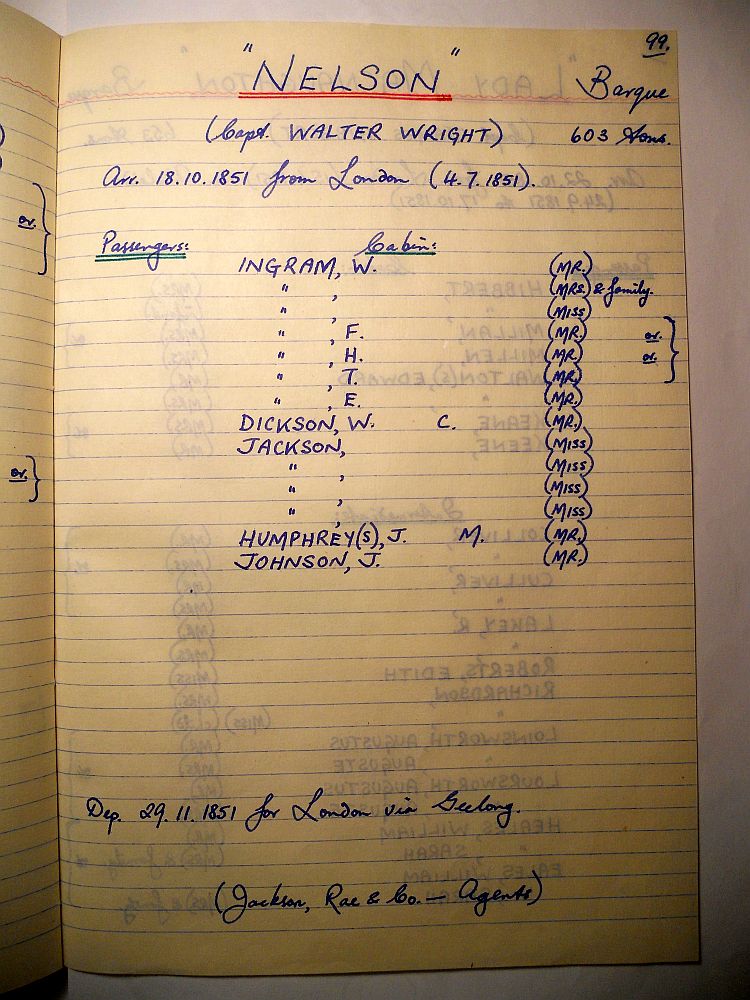 99.
"NELSON" Barque
(Capt. WALTER WRIGHT) 603 tons.
Arr. 18.10.1851 from London (4.7.1851).
Passengers: Cabin:
INGRAM, W. (MR.)
" , (MRS.) & family.
" , (MISS)
" , F. (MR.) or.
" , H. (MR.) or.
" , T. (MR.)
" , E. (MR.)
DICKSON, W. C. (MR.)
JACKSON, (MISS)
" , (MISS)
" , (MISS)
" , (MISS)
HUMPHREY(S), J. M. (MR.)
JOHNSON, J. (MR.)
Dep. 29.11.1851 for London via Geelong.
(Jackson, Rae & Co. — Agents)
or.
or.